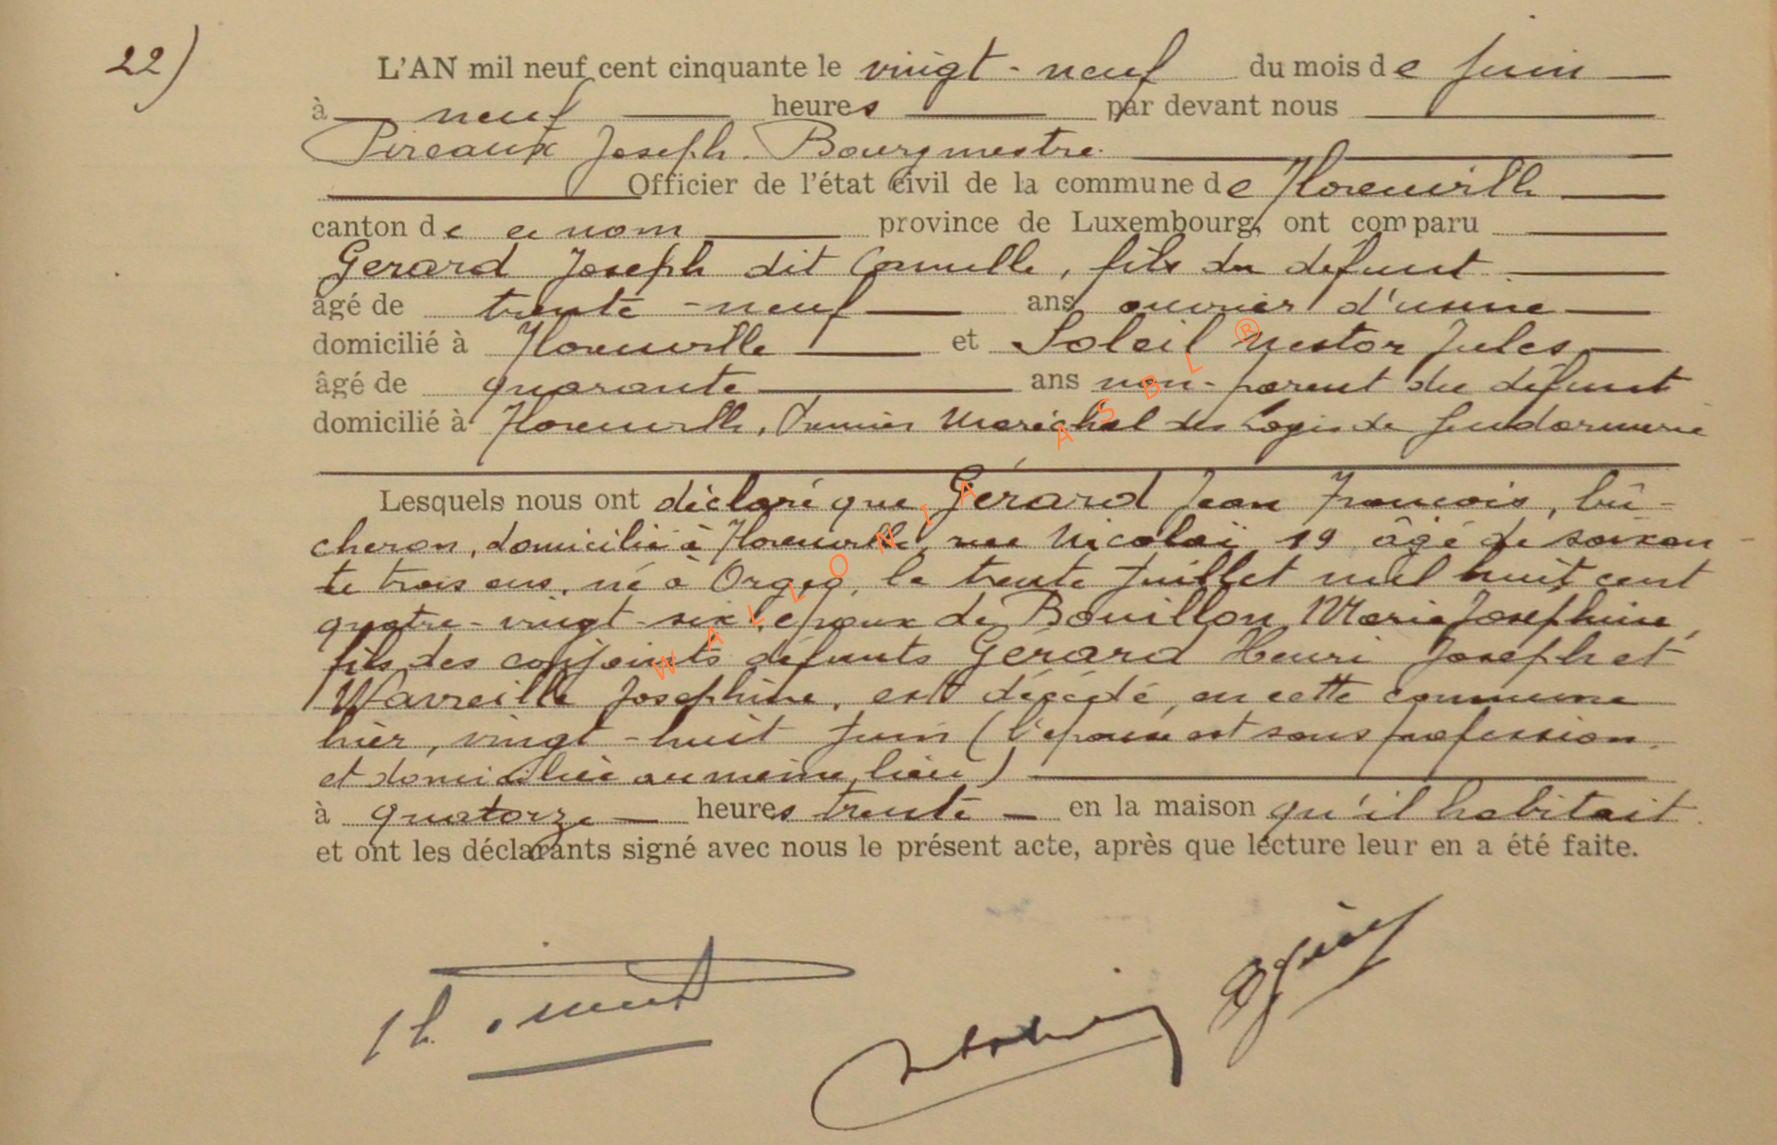 22)
L'AN mil neuf cent cinquante le vingt-neuf du mois de Juin
à neuf heures par devant nous
Pireaux Joseph. Bourgmestre.
Officier de l'état civil de la commune de Florenville
canton de ce nom province de Luxembourg, ont comparu
Gerard Joseph dit Camille, fils du défunt
âgé de trente-neuf ans ouvrier d'usine
domicilié à Florenville et Soleil Nestor Jules
âgé de quarante ans non-parent du défunt
domicilié à Florenville, Premier Maréchal des Logis de Gendarmerie
Lesquels nous ont déclaré que Gérard Jean François, bû-
cheron, domicilié à Florenville, rue Nicolaï 19 âgé de soixan-
te trois ans, né à Orgeo, le trente Juillet mil huit cent
quatre-vingt-six, époux de Bouillon Marie Joséphine,
fils des conjoints défunts Gérard Henri Joseph et
Wavreille Joséphine, est décédé, en cette commune
hier, vingt-huit Juin (l'épouse est sans profession.
et domiciliée au même lieu)
à quatorze heures trente en la maison qu'il habitait.
et ont les déclarants signé avec nous le présent acte, après que lecture leur en a été faite.
WALLONIA ASBL ®